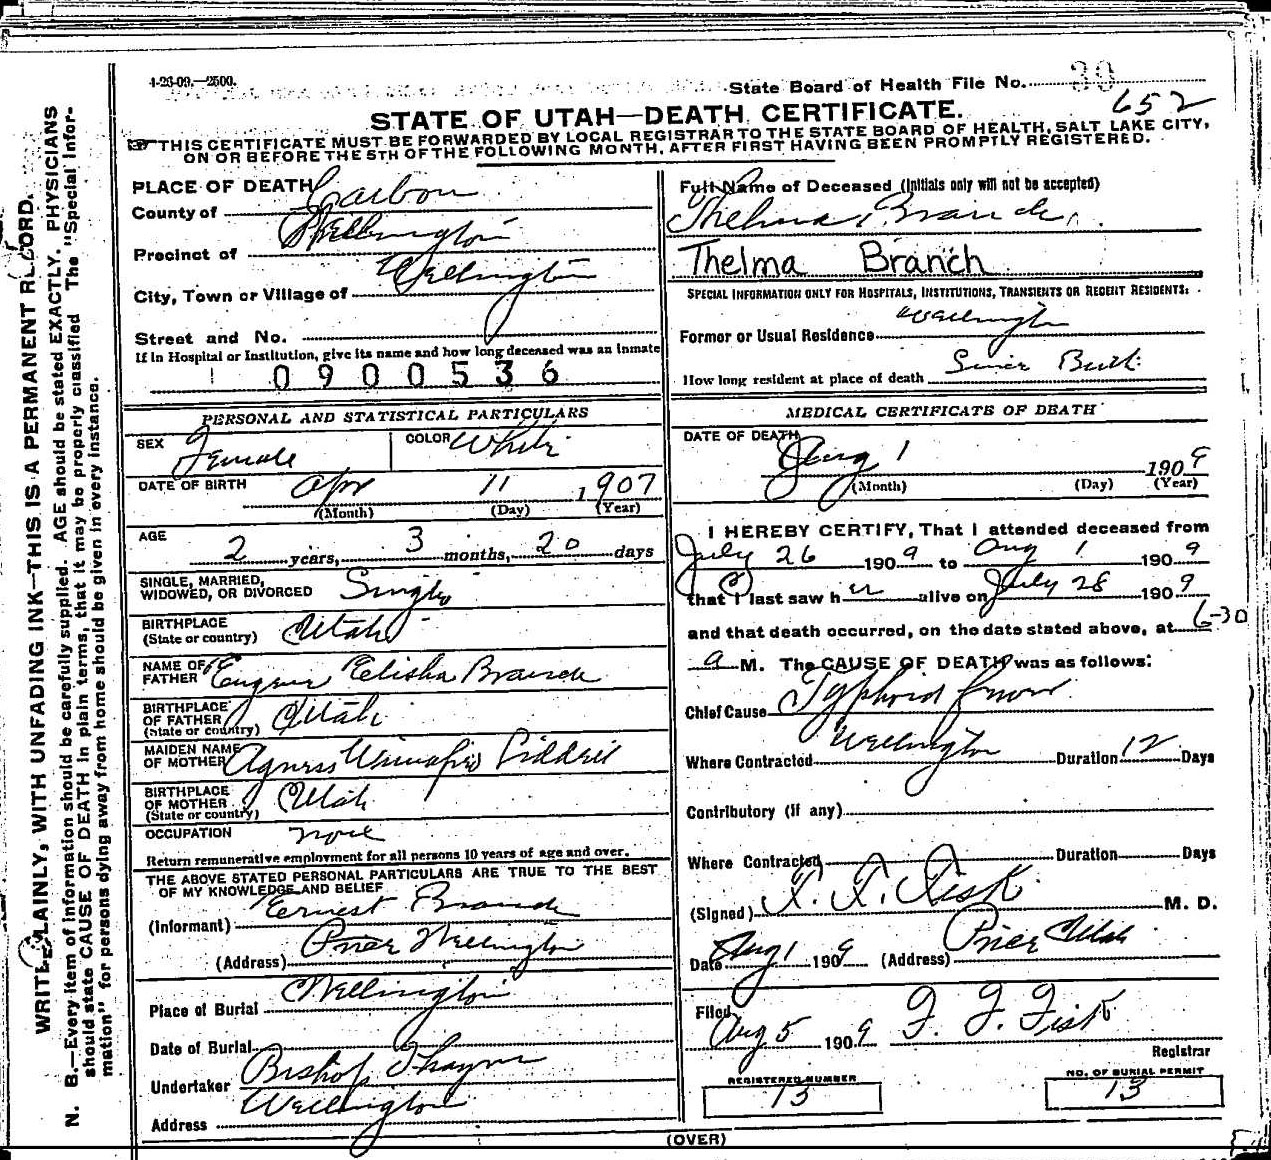 4-26-09.—2500.
State Board of Health File No. 30
652
STATE OF UTAH—DEATH CERTIFICATE.
THIS CERTIFICATE MUST BE FORWARDED BY LOCAL REGISTRAR TO THE STATE BOARD OF HEALTH, SALT LAKE CITY,
ON OR BEFORE THE 5TH OF THE FOLLOWING MONTH, AFTER FIRST HAVING BEEN PROMPTLY REGISTERED.
WRITE PLAINLY, WITH UNFADING INK—THIS IS A PERMANENT RECORD.
N. B.—Every item of information should be carefully supplied. AGE should be stated EXACTLY. PHYSICIANS
should state CAUSE OF DEATH in plain terms, that it may be properly classified The "Special Infor-
mation" for persons dying away from home should be given in every instance.
PLACE OF DEATH
County of Carbon
Precinct of Wellington
City, Town or Village of Wellington
Street and No.
If in Hospital or Institution, give its name and how long deceased was an inmate
0900536
PERSONAL AND STATISTICAL PARTICULARS
SEX Female COLOR White
DATE OF BIRTH Apr 11, 1907
(Month) (Day) (Year)
AGE 2 years, 3 months, 20 days
SINGLE, MARRIED,
WIDOWED, OR DIVORCED Single
BIRTHPLACE
(State or country) Utah
NAME OF
FATHER Eugene Elisha Branch
BIRTHPLACE
OF FATHER
(State or country) Utah
MAIDEN NAME
OF MOTHER Agness Winnifred Liddell
BIRTHPLACE
OF MOTHER
(State or country) Utah
OCCUPATION none
Return remunerative employment for all persons 10 years of age and over.
THE ABOVE STATED PERSONAL PARTICULARS ARE TRUE TO THE BEST
OF MY KNOWLEDGE AND BELIEF
(Informant) Ernest Branch
(Address) Price Wellington
Place of Burial Wellington
Date of Burial
Undertaker Bishop Thayne
Address Wellington
Full Name of Deceased (Initials only will not be accepted)
Thelma Branch
Thelma Branch
SPECIAL INFORMATION ONLY FOR HOSPITALS, INSTITUTIONS, TRANSIENTS OR RECENT RESIDENTS:
Former or Usual Residence Wellington
How long resident at place of death Since Birth
MEDICAL CERTIFICATE OF DEATH
DATE OF DEATH
Aug 1 1909
(Month) (Day) (Year)
I HEREBY CERTIFY, That I attended deceased from
July 26 1909 to Aug 1 1909
that I last saw her alive on July 28 1909
and that death occurred, on the date stated above, at 6-30
a M. The CAUSE OF DEATH was as follows:
Chief Cause Typhoid fever
Where Contracted Wellington Duration 12 Days
Contributory (if any)
Where Contracted Duration Days
(Signed) F. F. Fisk M. D.
Date Aug 1 1909 (Address) Price Utah
Filed Aug 5 1909 F. F. Fisk
Registrar
REGISTERED NUMBER
13
NO. OF BURIAL PERMIT
13
(OVER)